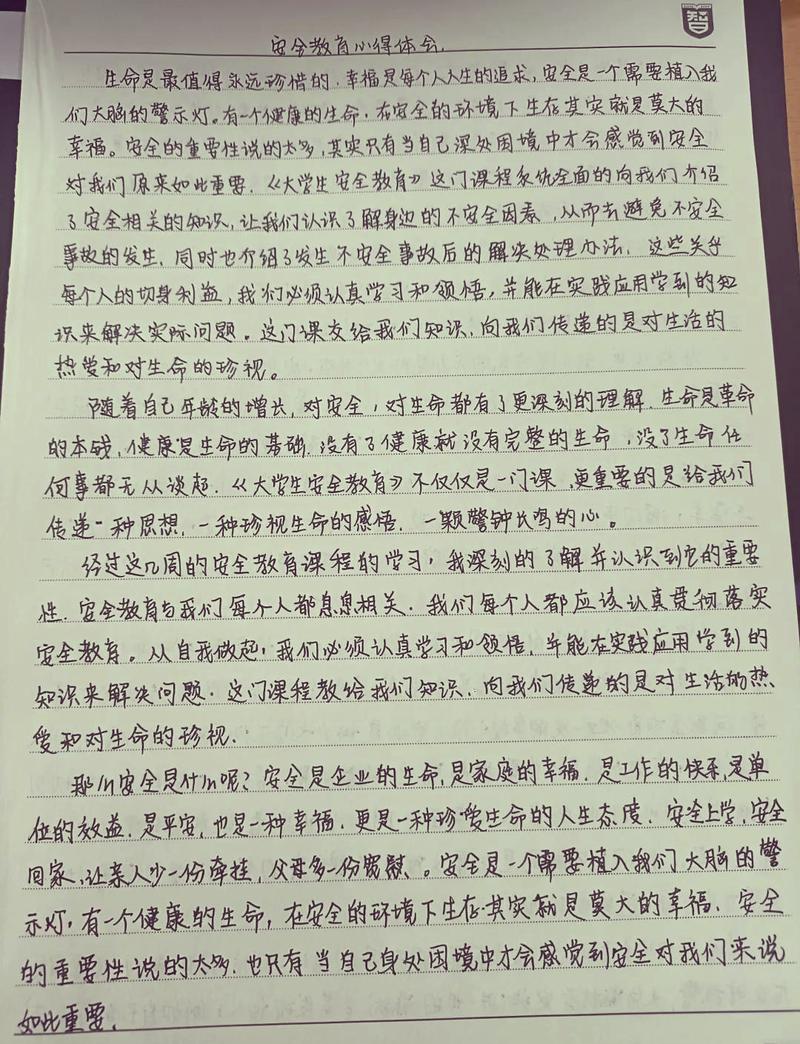 智
安全教育心得体会.
生命是最值得永远珍惜的.幸福是每个人人生的追求,安全是一个需要植入我
们大脑的警示灯。有一个健康的生命.在安全的环境下生存其实就是莫大的
幸福。安全的重要性说的太多,其实只有当自己深处困境中才会感觉到安全
对我们原来如此重要.《大学生安全教育》这门课程系统全面的向我们介绍
了安全相关的知识,让我们认识了解身边的不安全因素,从而去避免不安全
事故的发生.同时也介绍了发生不安全事故后的解决处理办法.这些关乎
每个人的切身利益,我们必须认真学习和领悟,并能在实践应用学到的知
识来解决实际问题。这门课交给我们知识.向我们传递的是对生活的
热爱和对生命的珍视。
随着自己年龄的增长,对安全,对生命都有了更深刻的理解.生命是革命
的本钱,健康是生命的基础.没有了健康就没有完整的生命,没了生命任
何事都无从谈起.《大学生安全教育》不仅仅是一门课,更重要的是给我们
传递一种思想.一种珍视生命的感悟.一颗警钟长鸣的心。
经过这几周的安全教育课程的学习,我深刻的了解并认识到它的重要
性.安全教育与我们每个人都息息相关.我们每个人都应该认真贯彻落实
安全教育。从自我做起,我们必须认真学习和领悟,并能在实践应用学到的
知识来解决问题.这门课程教给我们知识.向我们传递的是对生活的热
爱和对生命的珍视.
那么安全是什么呢?安全是企业的生命,是家庭的幸福.是工作的快乐,是单
位的效益.是平安.也是一种幸福.更是一种珍爱生命的人生态度.安全上学,安全
回家,让亲人少一份牵挂,父母多一份宽慰、。安全是一个需要植入我们大脑的警
示灯,有一个健康的生命,在安全的环境下生存.其实就是莫大的幸福.安全
的重要性说的太多.也只有当自己身处困境中才会感觉到安全对我们来说
如此重要.